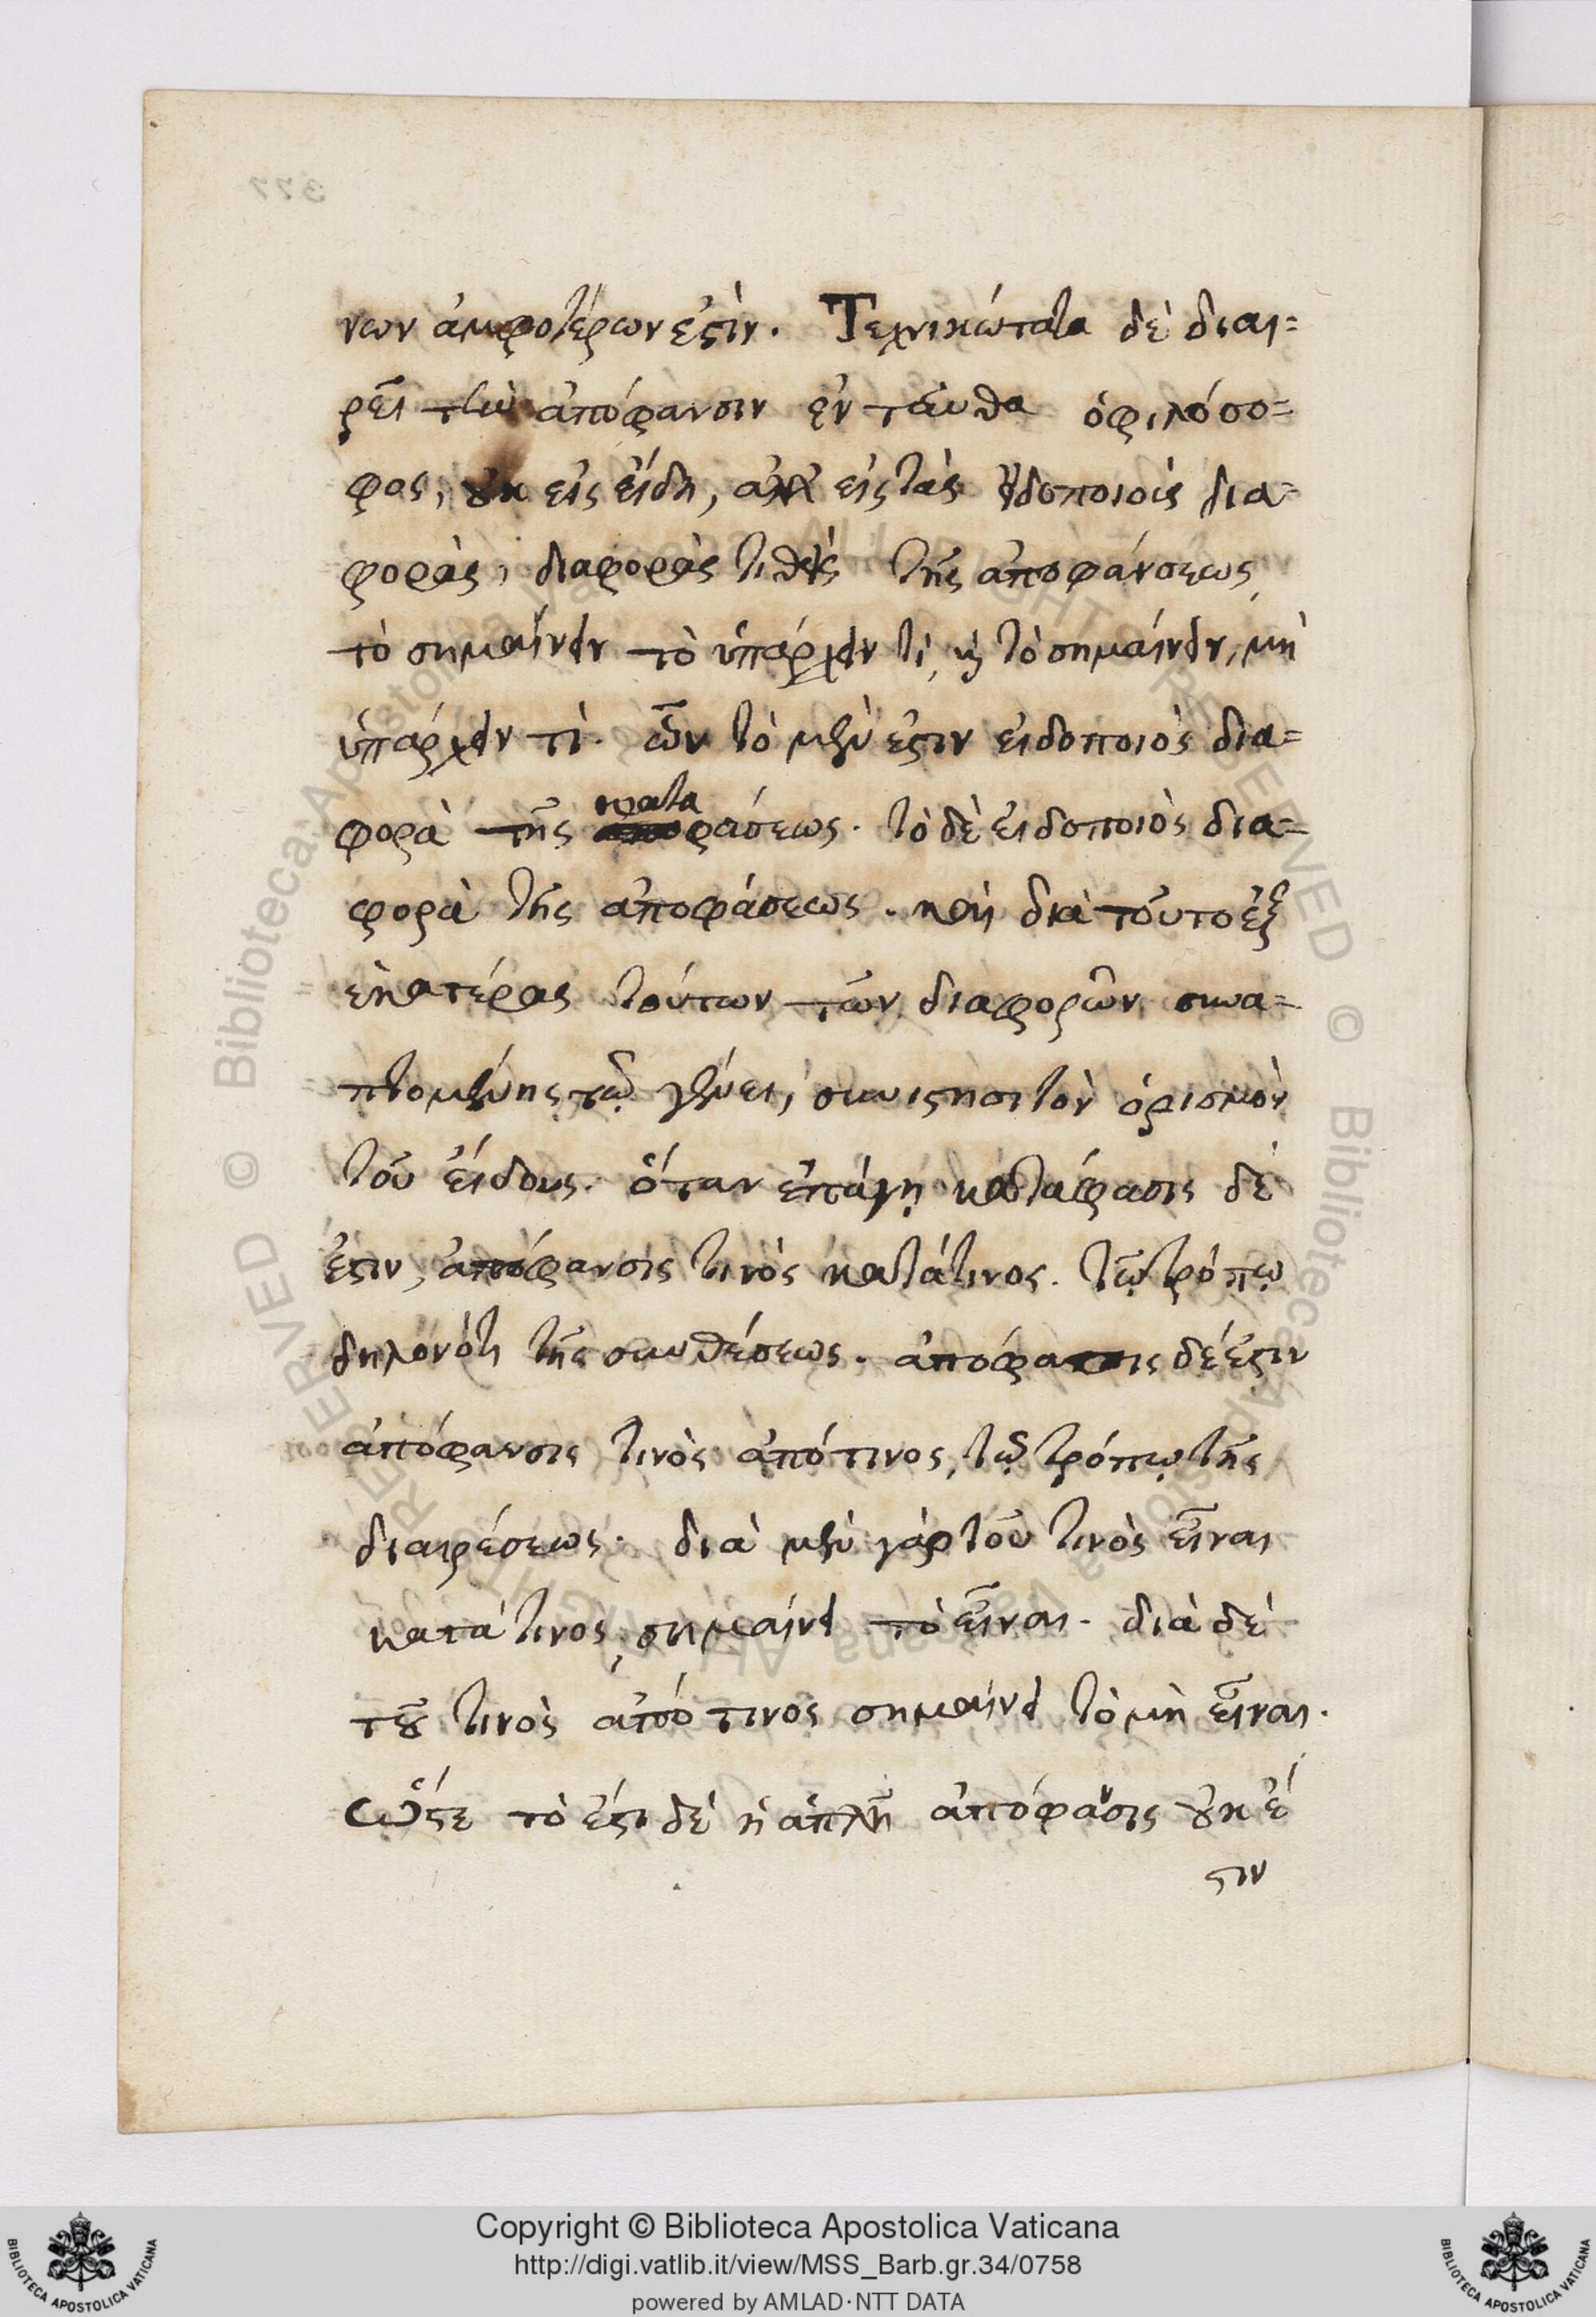 νων ἀμφοτέρων ἐστὶν. Τεχνικώτατα δὲ διαι=
ρεῖ τὴν ἀπόφανσιν ἐν ταύθα ὁ φιλόσο=
φος, οὐκ εἰς εἴδη, ἀλλ' εἰς τὰς εἰδοποιοὶς δια=
φορὰς, διαφορὰς τιθεὶς τῆς ἀποφάνσεως,
τὸ σημαίνειν τὸ ὑπάρχειν τὶ, καὶ τὸ σημαίνειν, μὴ
ὑπάρχειν τὶ. ὧν τὸ μὲν ἐστιν εἰδοποιὸς δια=
φορὰ τῆς καταφάσεως. τὸ δὲ εἰδοποιὸς δια=
φορὰ τῆς ἀποφάσεως. καὶ διὰ τοῦτο ἐξ
ἑκατέρας τούτων τῶν διαφορῶν συνα=
πτομένης τῷ γένει, συνίστησι τὸν ὁρισμὸν
τοῦ εἴδους. ὅταν ἐπάγῃ κατάφασις δὲ
ἐστιν, ἀπόφανσις τινὸς κατά τινος. τῷ τρόπῳ
δηλονότι τῆς συνθέσεως. ἀπόφασις δέ ἐστιν
ἀπόφανσις τινὸς ἀπό τινος, τῷ τρόπῳ τῆς
διαιρέσεως. διὰ μὲν γὰρ τοῦ τινὸς εἶναι
κατά τινος, σημαίνει τὸ εἶναι. διὰ δὲ
τοῦ τινὸς ἀπό τινος σημαίνει τὸ μὴ εἶναι.
Ὥστε τὸ ἔστι δὲ ἡ ἁπλῆ ἀπόφασις οὐκ ἔ
στιν
377
© Biblioteca Apostolica Vaticana ALL RIGHTS RESERVED
Copyright © Biblioteca Apostolica Vaticana
http://digi.vatlib.it/view/MSS_Barb.gr.34/0758
powered by AMLAD·NTT DATA
BIBLIOTECA APOSTOLICA VATICANA
BIBLIOTECA APOSTOLICA VATICANA